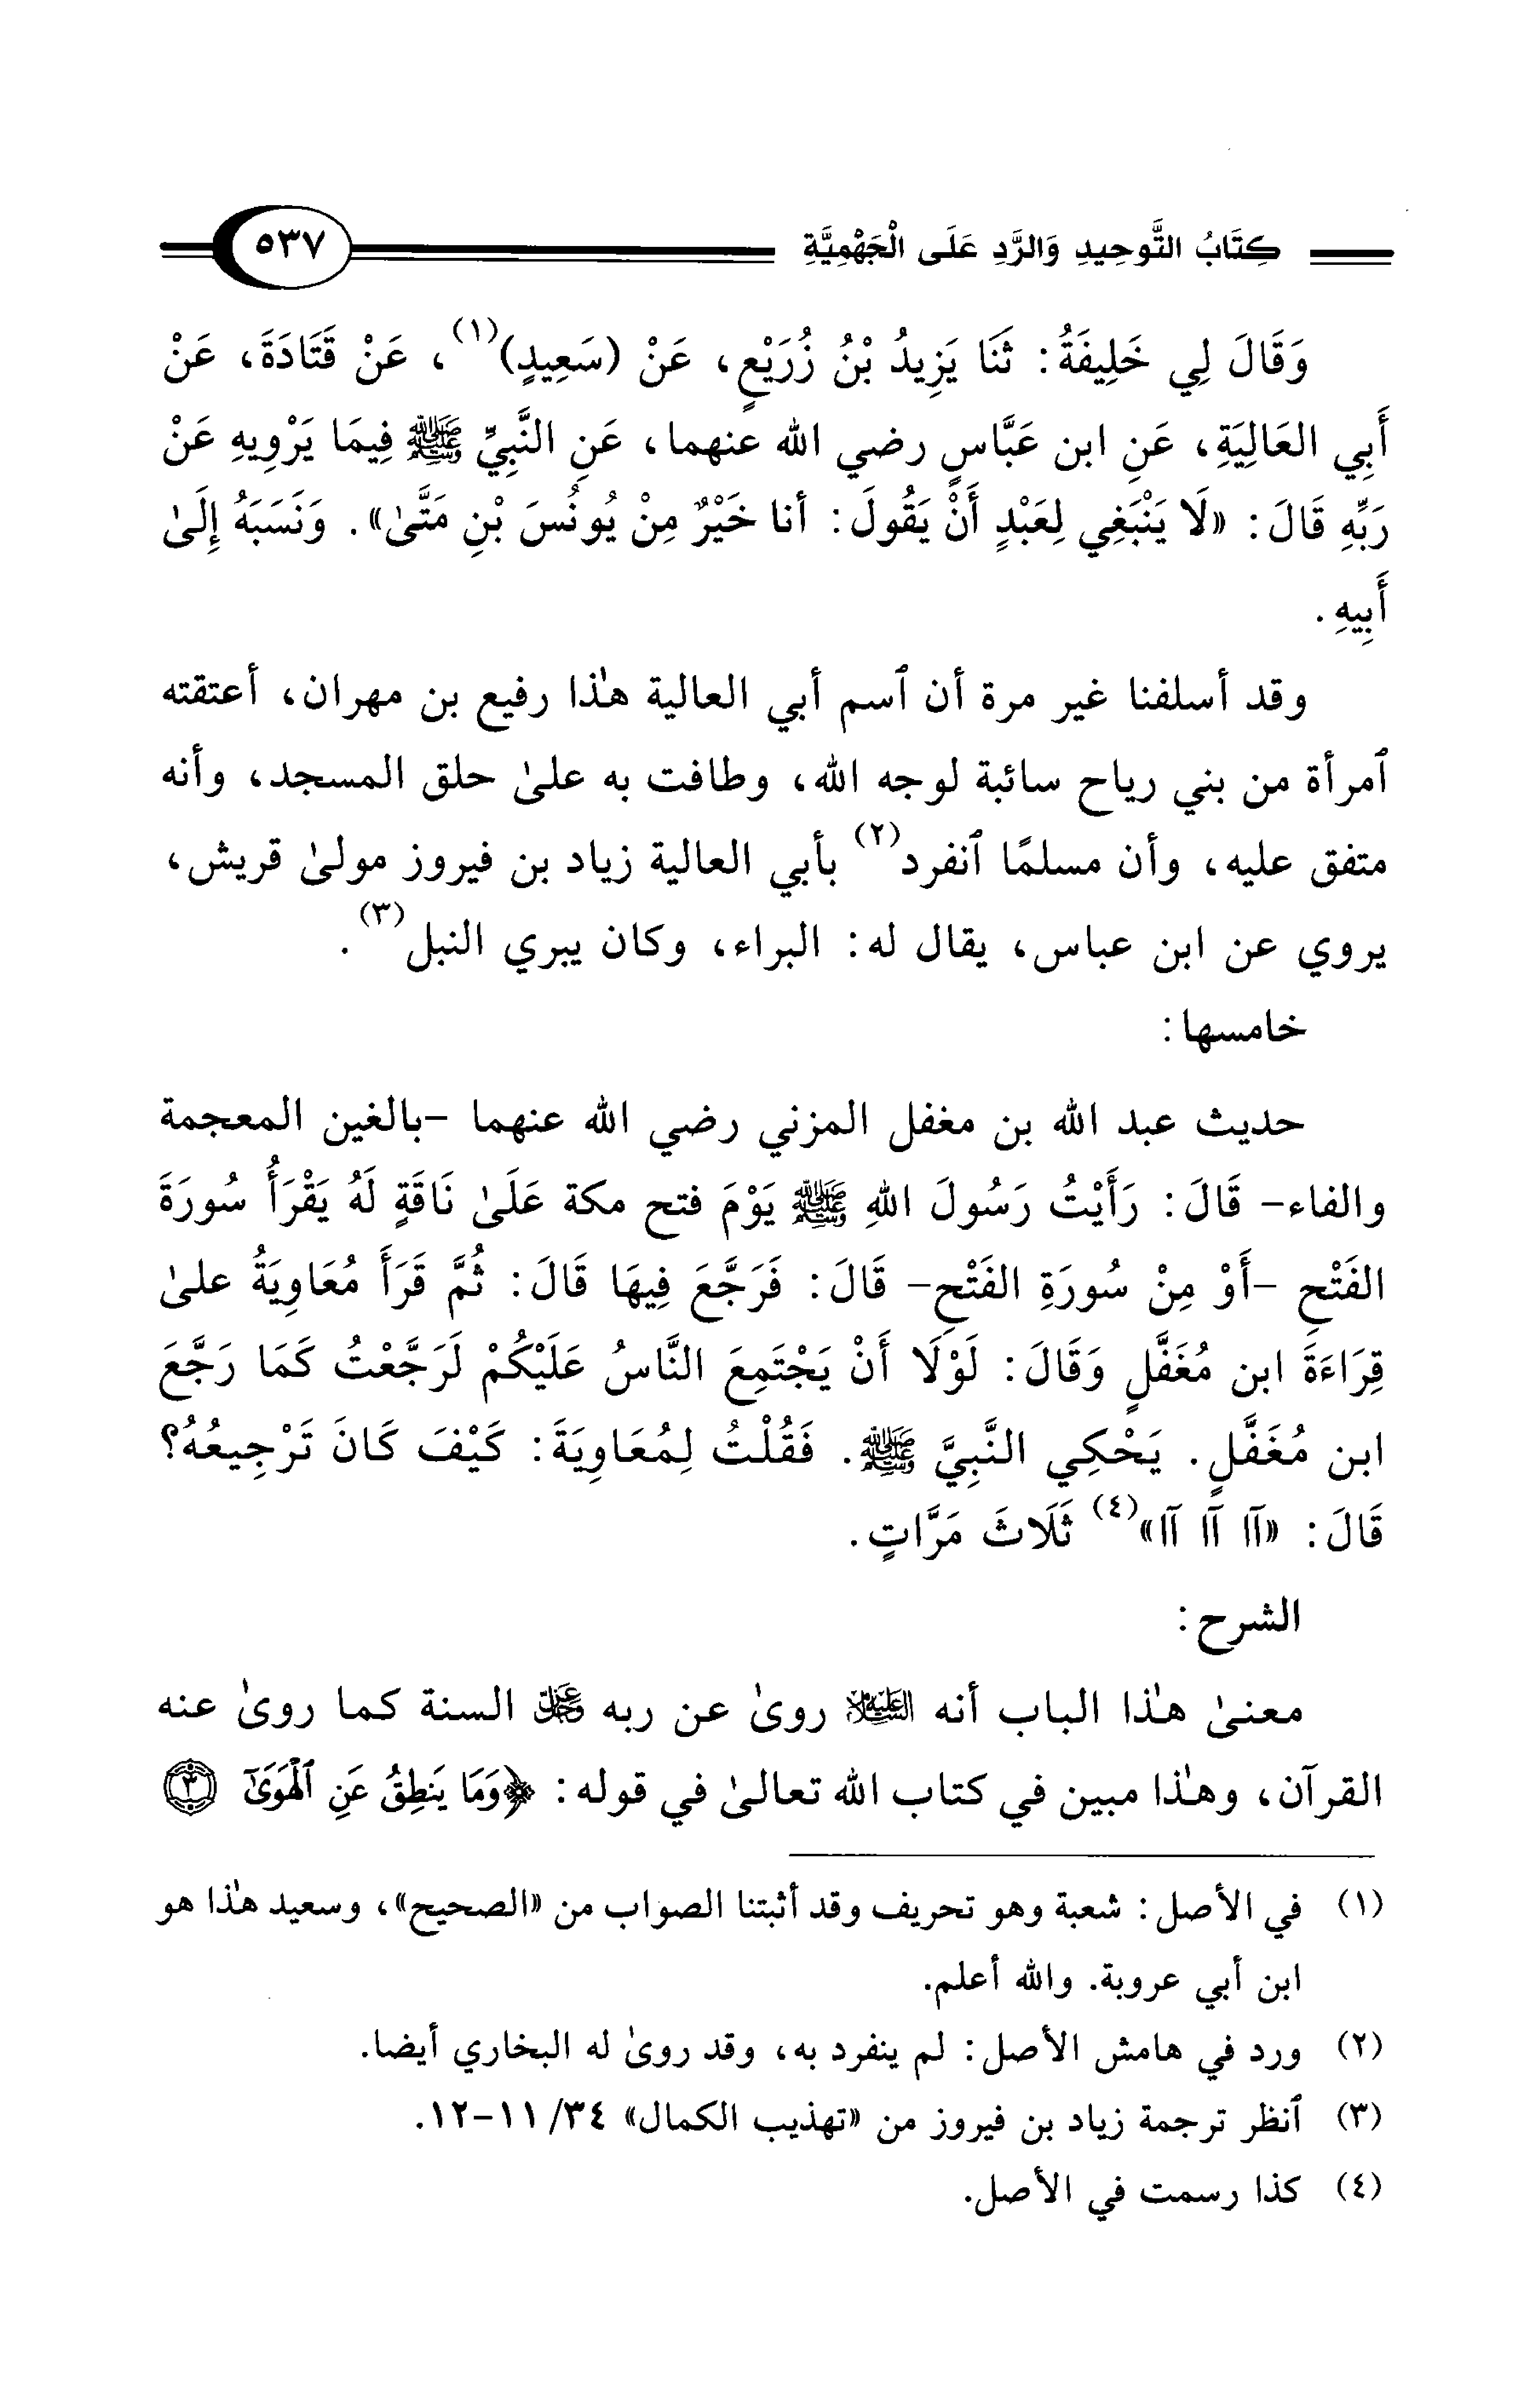 كِتَابُ التَّوحِيدِ وَالرَّدِ عَلَى الْجَهْمِيَّةِ ٥٣٧
وَقَالَ لِي خَلِيفَةُ: ثَنَا يَزِيدُ بْنُ زُرَيْعٍ، عَنْ (سَعِيدٍ)(١)، عَنْ قَتَادَةَ، عَنْ
أَبِي العَالِيَةِ، عَنِ ابن عَبَّاسٍ رضي الله عنهما، عَنِ النَّبِيِّ ﷺ فِيمَا يَرْوِيهِ عَنْ
رَبِّهِ قَالَ: «لَا يَنْبَغِي لِعَبْدٍ أَنْ يَقُولَ: أنا خَيْرٌ مِنْ يُونُسَ بْنِ مَتَّىٰ». وَنَسَبَهُ إِلَىٰ
أَبِيهِ.
وقد أسلفنا غير مرة أن ٱسم أبي العالية هٰذا رفيع بن مهران، أعتقته
ٱمرأة من بني رياح سائبة لوجه الله، وطافت به علىٰ حلق المسجد، وأنه
متفق عليه، وأن مسلمًا ٱنفرد(٢) بأبي العالية زياد بن فيروز مولىٰ قريش،
يروي عن ابن عباس، يقال له: البراء، وكان يبري النبل(٣).
خامسها:
حديث عبد الله بن مغفل المزني رضي الله عنهما -بالغين المعجمة
والفاء- قَالَ: رَأَيْتُ رَسُولَ اللهِ ﷺ يَوْمَ فتح مكة عَلَىٰ نَاقَةٍ لَهُ يَقْرَأُ سُورَةَ
الفَتْحِ -أَوْ مِنْ سُورَةِ الفَتْحِ- قَالَ: فَرَجَّعَ فِيهَا قَالَ: ثُمَّ قَرَأَ مُعَاوِيَةُ علىٰ
قِرَاءَةَ ابن مُغَفَّلٍ وَقَالَ: لَوْلَا أَنْ يَجْتَمِعَ النَّاسُ عَلَيْكُمْ لَرَجَّعْتُ كَمَا رَجَّعَ
ابن مُغَفَّلٍ. يَحْكِي النَّبِيَّ ﷺ. فَقُلْتُ لِمُعَاوِيَةَ: كَيْفَ كَانَ تَرْجِيعُهُ؟
قَالَ: «آا آا آا»(٤) ثَلَاثَ مَرَّاتٍ.
الشرح:
معنىٰ هٰذا الباب أنه عليه السلام روىٰ عن ربه عز وجل السنة كما روىٰ عنه
القرآن، وهٰذا مبين في كتاب الله تعالىٰ في قوله: ﴿وَمَا يَنطِقُ عَنِ ٱلْهَوَىٰٓ ٣
(١) في الأصل: شعبة وهو تحريف وقد أثبتنا الصواب من «الصحيح»، وسعيد هٰذا هو
ابن أبي عروبة. والله أعلم.
(٢) ورد في هامش الأصل: لم ينفرد به، وقد روىٰ له البخاري أيضا.
(٣) ٱنظر ترجمة زياد بن فيروز من «تهذيب الكمال» ٣٤/ ١١-١٢.
(٤) كذا رسمت في الأصل.